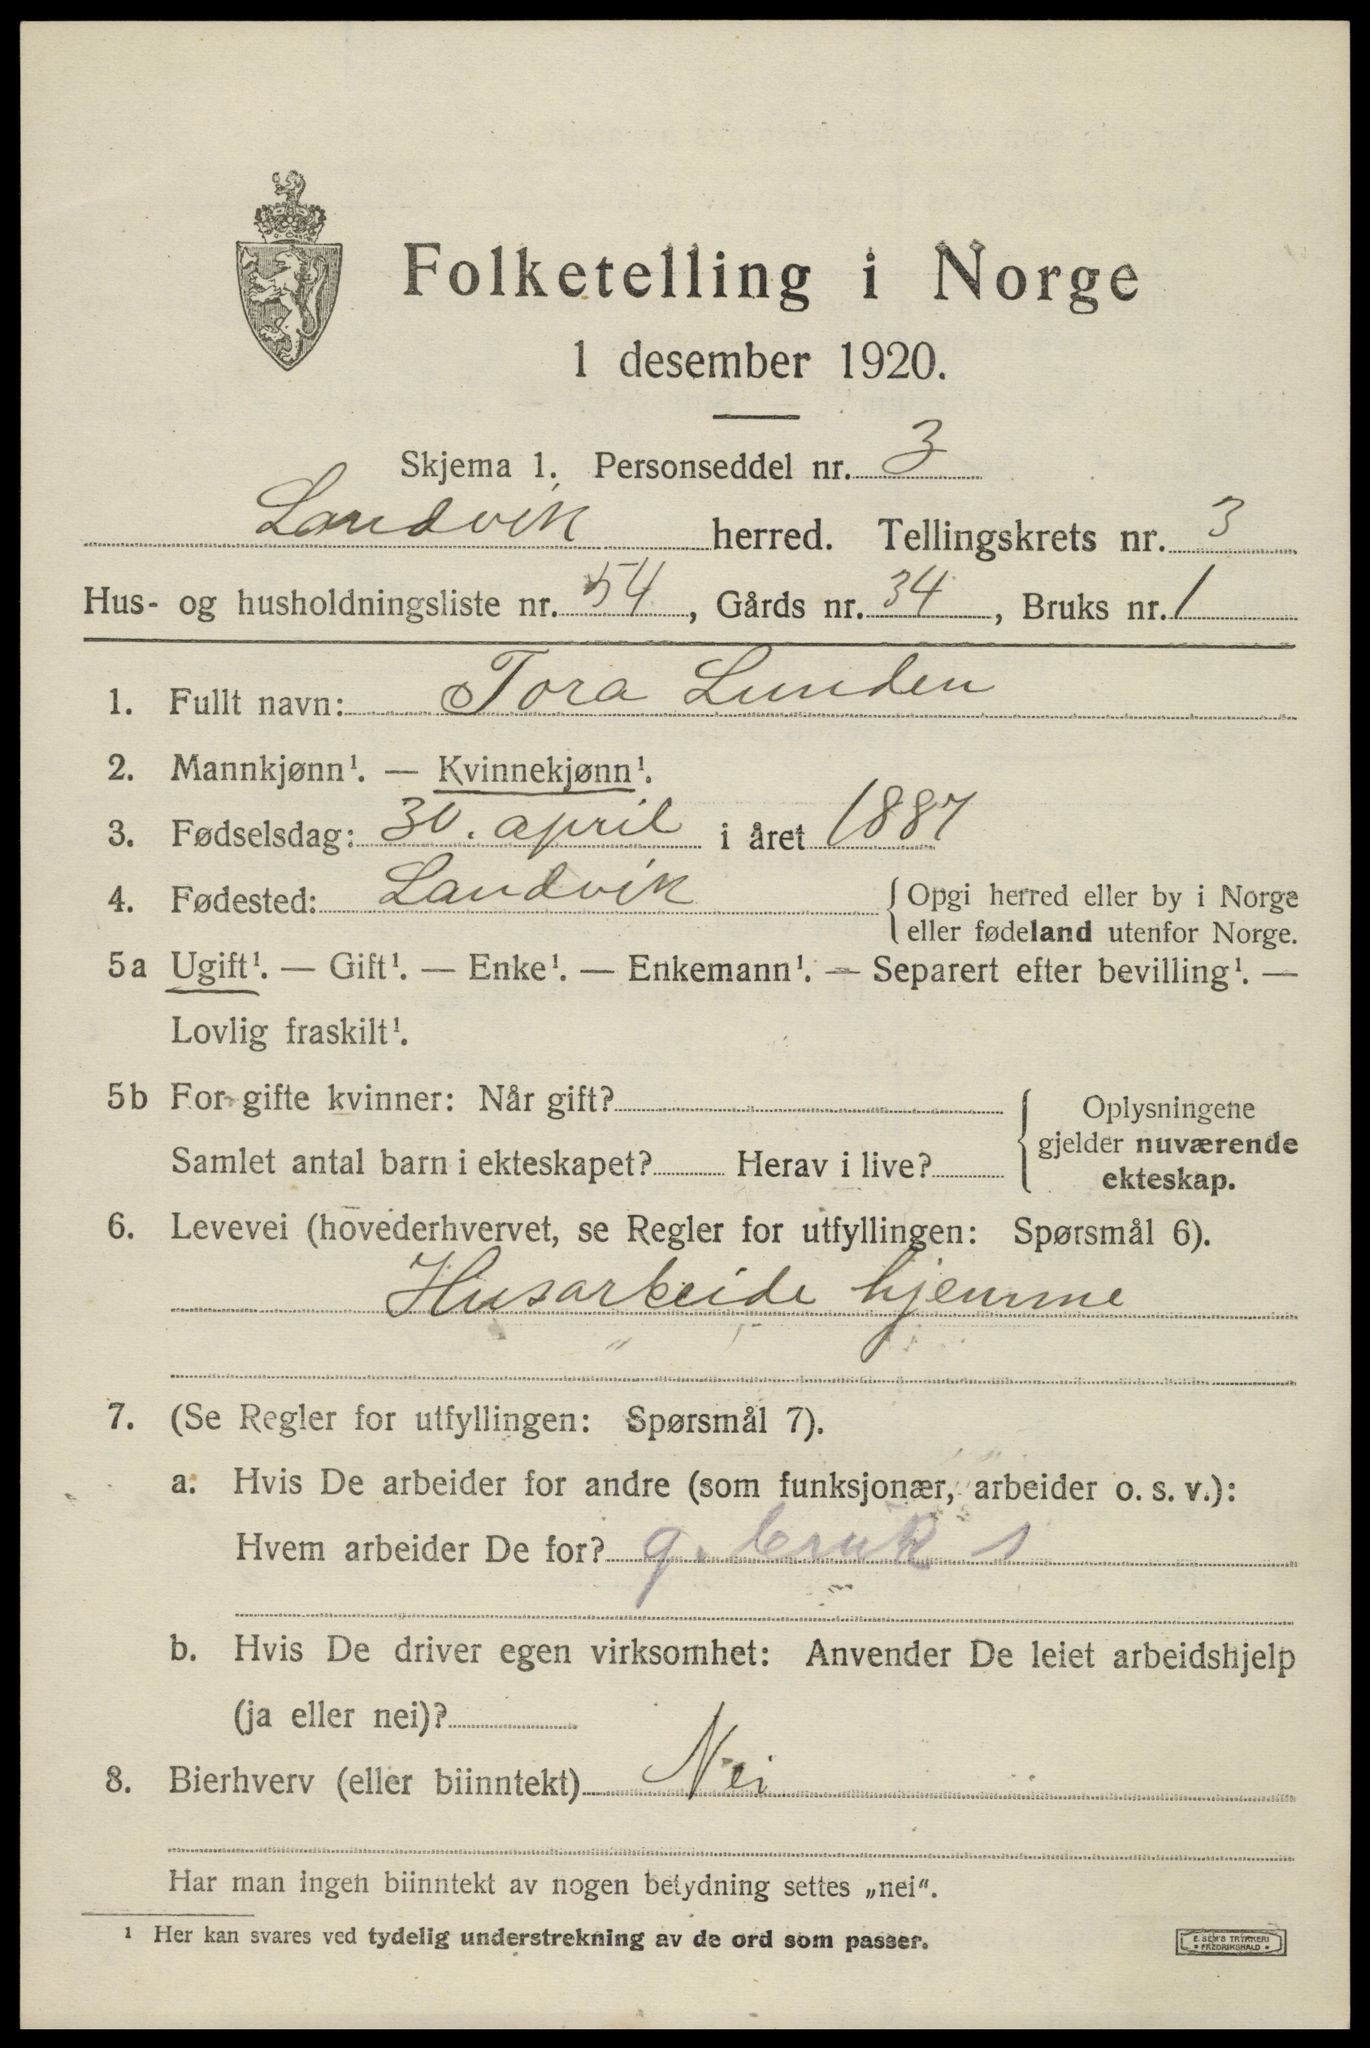 Folketelling i Norge
1 desember 1920.
Skjema 1. Personseddel nr. 3
Landvik herred. Tellingskrets nr. 3
Hus- og husholdningsliste nr. 54, Gårds nr. 34, Bruks nr. 1
1. Fullt navn: Tora Lunden
2. Mannkjønn¹. — Kvinnekjønn¹.
3. Fødselsdag: 30. april i året 1887
4. Fødested: Landvik { Opgi herred eller by i Norge
eller fødeland utenfor Norge.
5a Ugift¹. — Gift¹. — Enke¹. — Enkemann¹. — Separert efter bevilling¹. —
Lovlig fraskilt¹.
5b For gifte kvinner: Når gift? { Oplysningene
gjelder nuværende
Samlet antal barn i ekteskapet? Herav i live? ekteskap.
6. Levevei (hovederhvervet, se Regler for utfyllingen: Spørsmål 6).
Husarbeide hjemme
7. (Se Regler for utfyllingen: Spørsmål 7).
a. Hvis De arbeider for andre (som funksjonær, arbeider o. s. v.):
Hvem arbeider De for? g. bruk s
b. Hvis De driver egen virksomhet: Anvender De leiet arbeidshjelp
(ja eller nei)?
8. Bierhverv (eller biinntekt) Nei
Har man ingen biinntekt av nogen betydning settes „nei“.
¹ Her kan svares ved tydelig understrekning av de ord som passer.
E. SEM'S TRYKKERI
* FREDRIKSHALD *